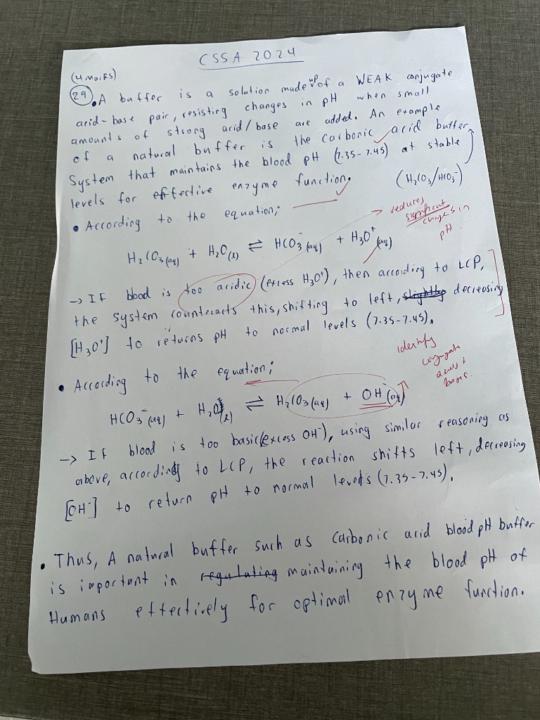 CSSA 2024
(4 marks)
29 • A buffer is a solution made up of a WEAK conjugate
acid-base pair, resisting changes in pH when small
amounts of strong acid/base are added. An example
of a natural buffer is the carbonic acid buffer
System that maintains the blood pH (7.35-7.45) at stable
levels for effective enzyme function.
(H₂CO₃/HCO₃⁻)
• According to the equation;
reduces
significant
changes in
pH
H₂CO₃(aq) + H₂O(l) ⇌ HCO₃⁻(aq) + H₃O⁺(aq)
→ IF blood is too acidic (excess H₃O⁺), then according to LCP,
the system counteracts this, shifting to left, slightly decreasing
[H₃O⁺] to returns pH to normal levels (7.35-7.45).
identify
conjugate
acids +
bases.
• According to the equation;
HCO₃⁻(aq) + H₂O(l) ⇌ H₂CO₃(aq) + OH⁻(aq)
→ IF blood is too basic (excess OH⁻), using similar reasoning as
above, according to LCP, the reaction shifts left, decreasing
[OH⁻] to return pH to normal levels (7.35-7.45).
• Thus, A natural buffer such as Carbonic acid blood pH buffer
is important in regulating maintaining the blood pH of
Humans effectively for optimal enzyme function.